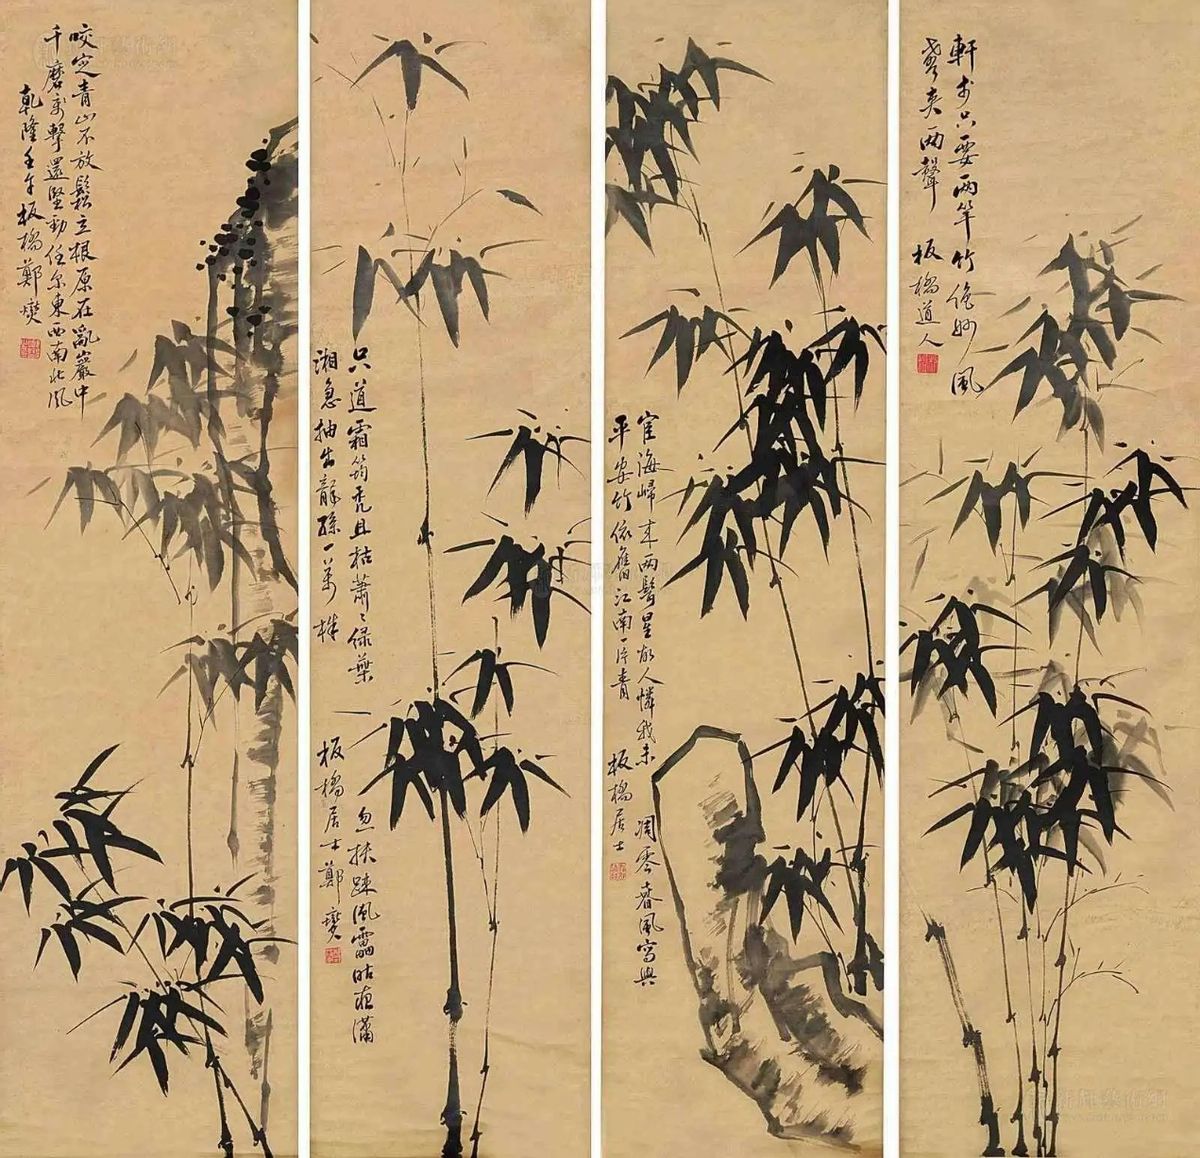 軒前只要兩竿竹絕妙風
聲夾雨聲
板橋道人
宦海歸來兩鬢星故人憐我未凋零春風寫與
平安竹依舊江南一片青
板橋居士
只道霜筠禿且枯蕭〻綠葉忽扶疎風雷昨夜瀟
湘急抽出龍孫一萬株
板橋居士鄭燮
咬定青山不放鬆立根原在亂巖中
千磨萬擊還堅勁任尔東西南北風
乾隆壬午板橋鄭燮